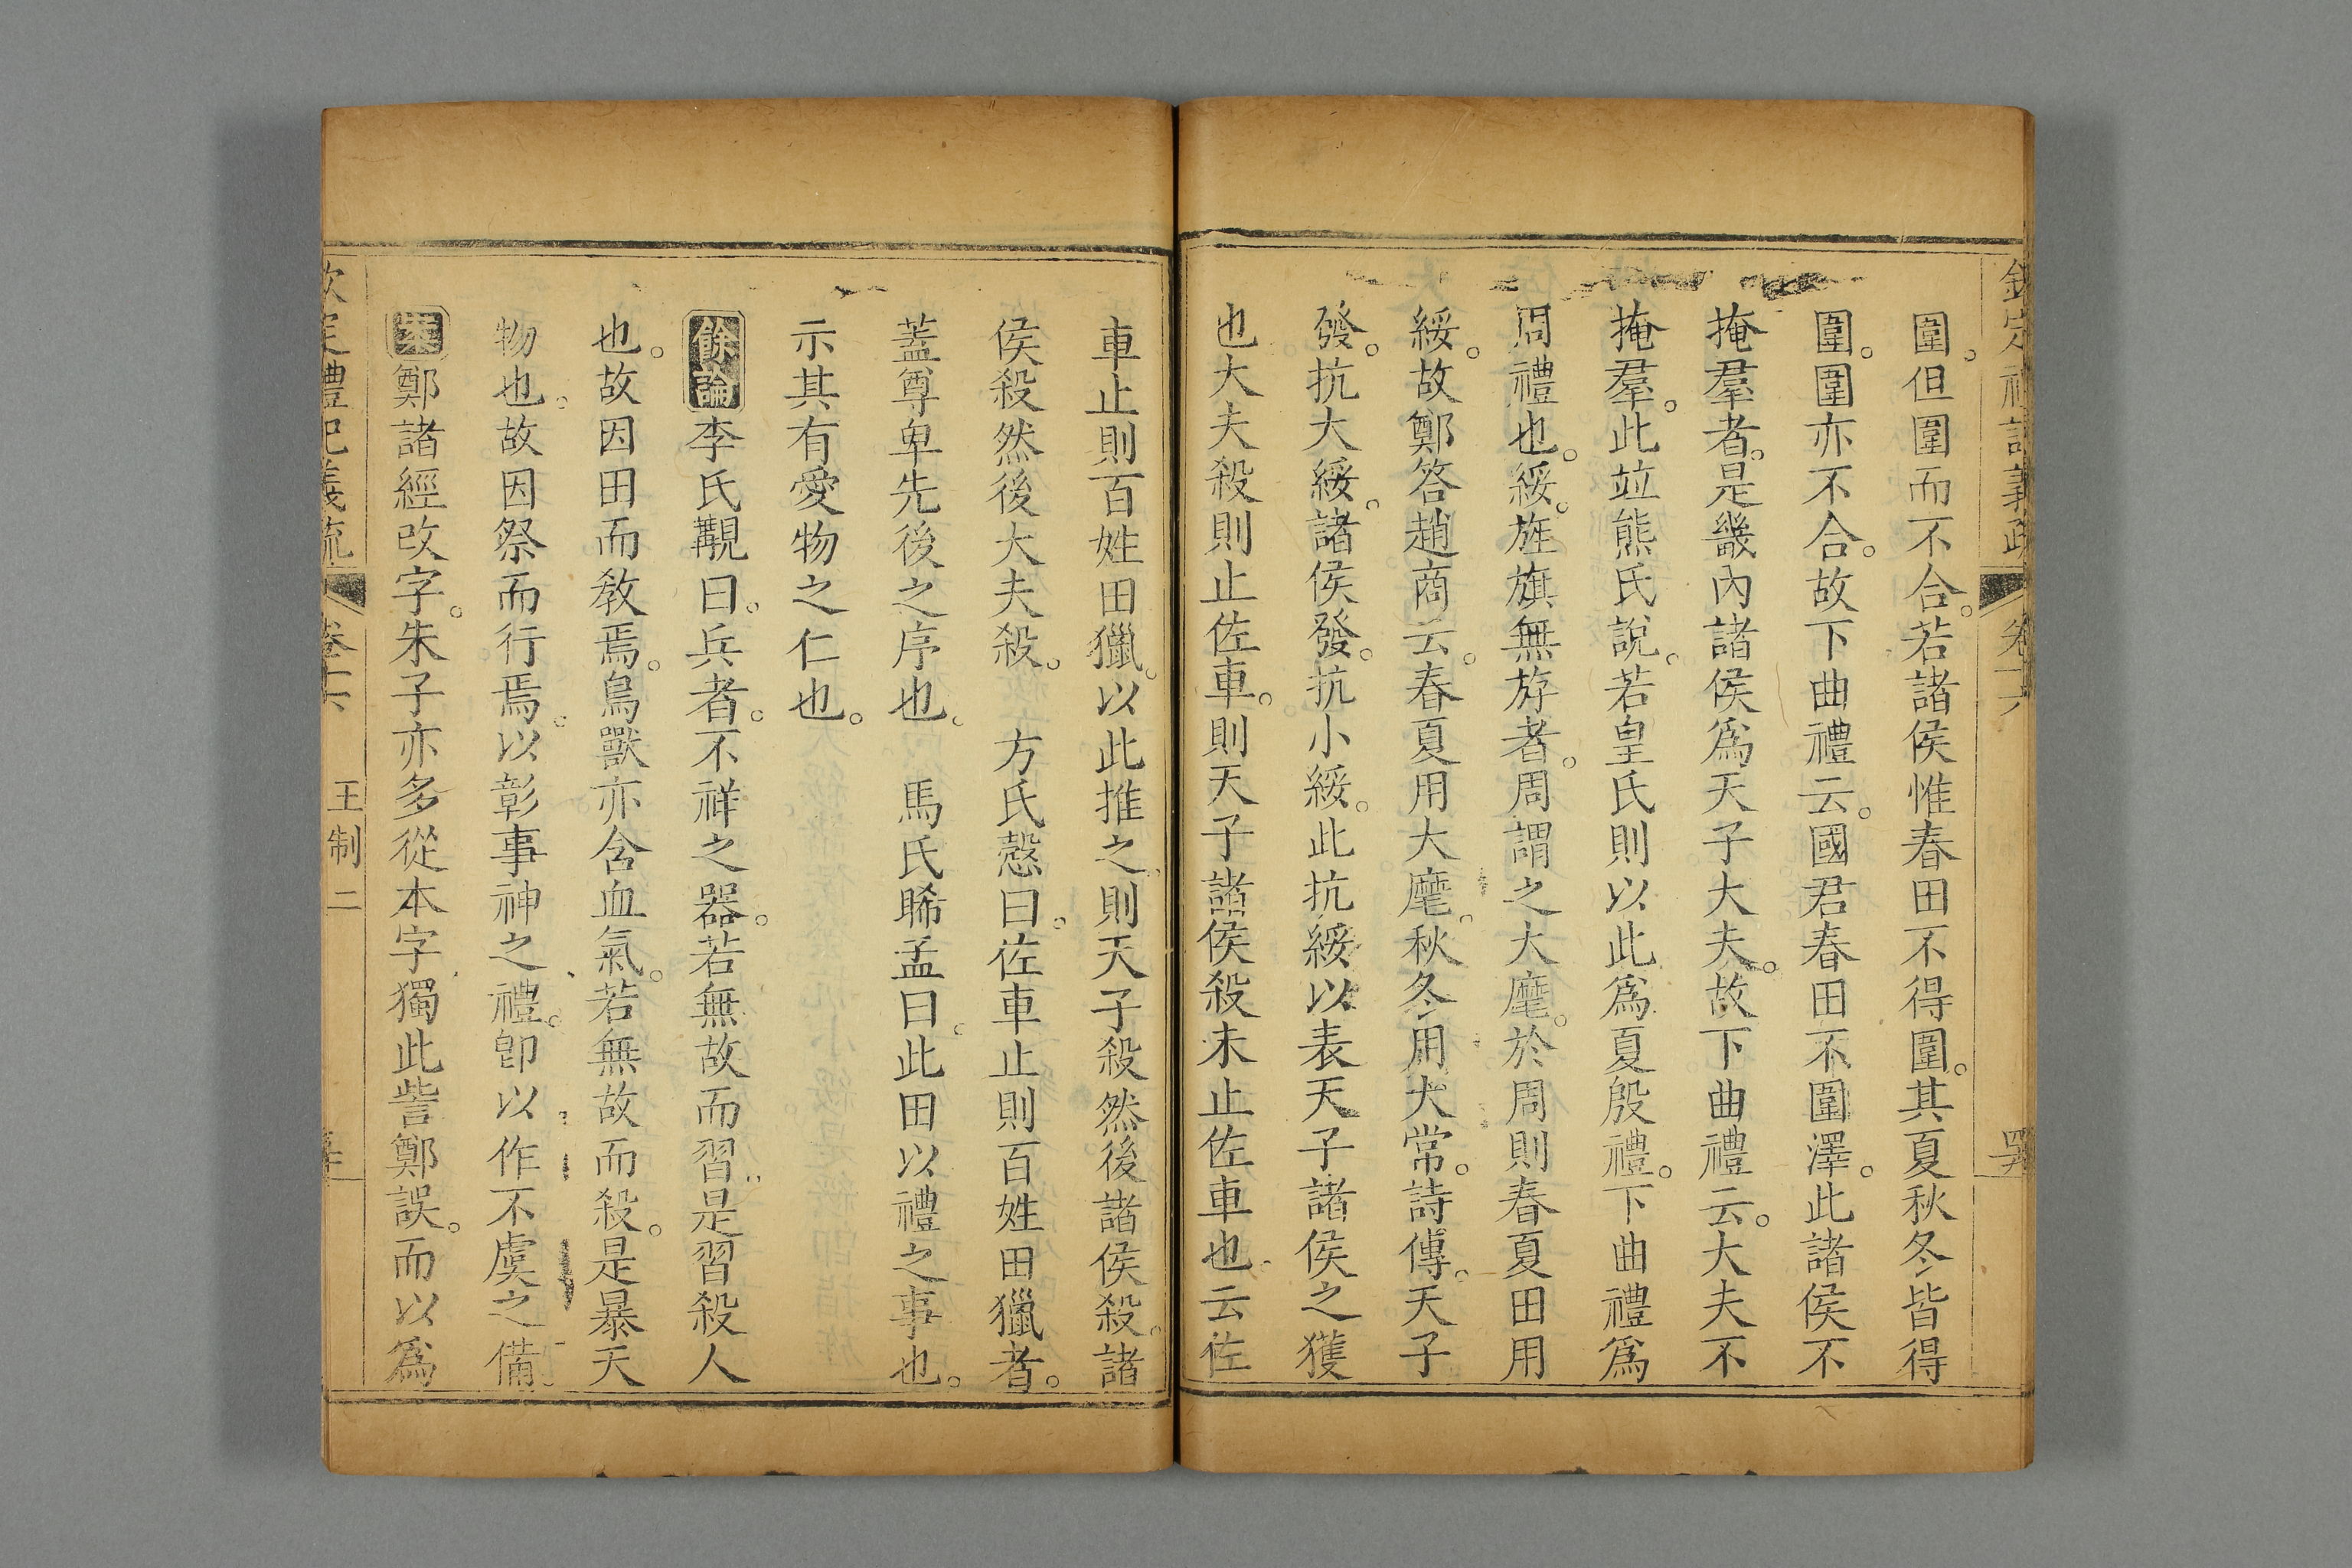 欽定禮記義疏 卷十六
圍。但圍而不合。若諸侯惟春田不得圍。其夏秋冬皆得
圍。圍亦不合。故下曲禮云。國君春田不圍澤。此諸侯不
掩羣者。是畿內諸侯爲天子大夫。故下曲禮云。大夫不
掩羣。此竝熊氏說。若皇氏則以此爲夏殷禮。下曲禮爲
周禮也。綏。旌旗無斿者。周謂之大麾。於周則春夏田用
綏。故鄭答趙商云。春夏用大麾。秋冬用大常。詩傳。天子
發。抗大綏。諸侯發。抗小綏。此抗綏以表天子諸侯之獲
也大夫殺則止佐車。則天子諸侯殺未止佐車也云佐
車止則百姓田獵。以此推之則天子殺然後諸侯殺。諸
侯殺然後大夫殺。 方氏慤曰。佐車止則百姓田獵者。
蓋尊卑先後之序也。 馬氏睎孟曰。此田以禮之事也。
示其有愛物之仁也。
餘論 李氏覯曰。兵者。不祥之器。若無故而習是習殺人
也。故因田而教焉。鳥獸亦含血氣。若無故而殺。是暴天
物也。故因祭而行焉。以彰事神之禮。卽以作不虞之備。
案 鄭諸經改字。朱子亦多從本字獨此訾鄭誤。而以爲
欽定禮記義疏 卷十六 王制二